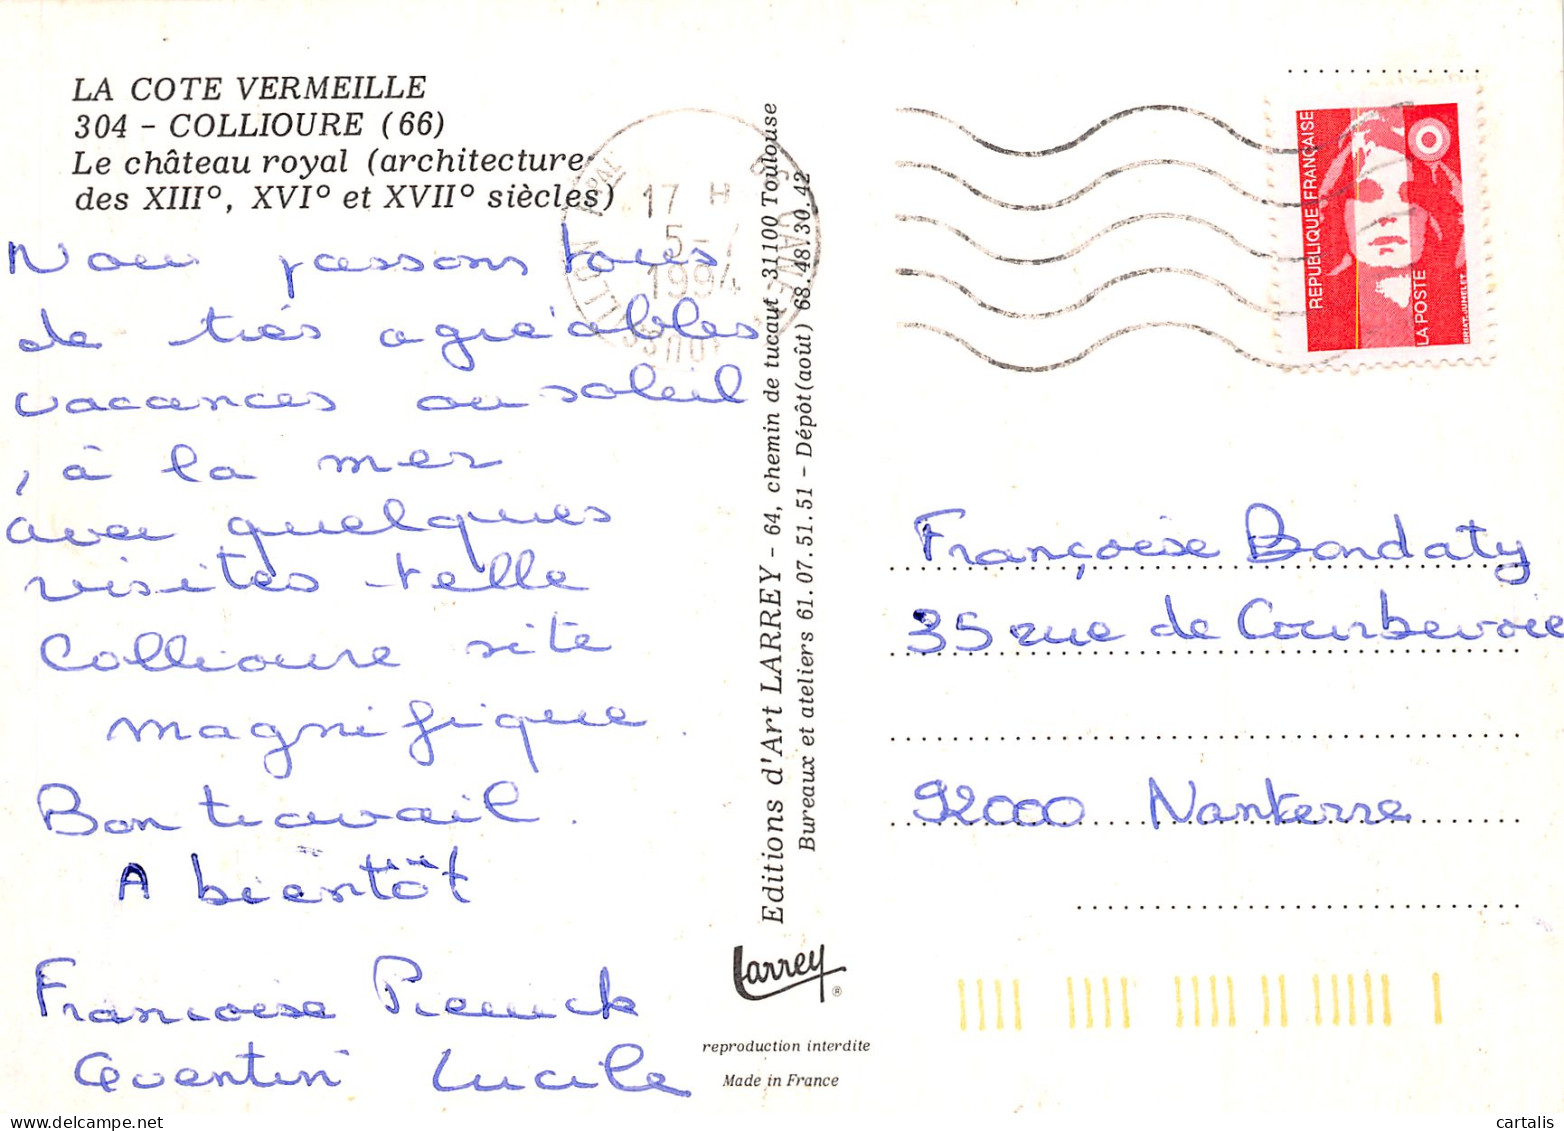 LA COTE VERMEILLE
304 - COLLIOURE (66)
Le château royal (architecture
des XIII°, XVI° et XVII° siècles)
Nous passons tous
de très agréables
vacances au soleil
, à la mer
avec quelques
visites telle
Collioure site
magnifique.
Bon travail.
A bientôt
Françoise Pierrick
Quentin Lucile
17 H
5-
1994
Editions d'Art LARREY - 64, chemin de tucaut 31100 Toulouse
Bureaux et ateliers 61.07.51.51 - Dépôt (août) 68.48.30.42
Larrey ®
reproduction interdite
Made in France
REPUBLIQUE FRANÇAISE
LA POSTE
BRIAT-JUMELET
Françoise Bondaty
35 rue de Courbevoie
92000 Nanterre
cartalis